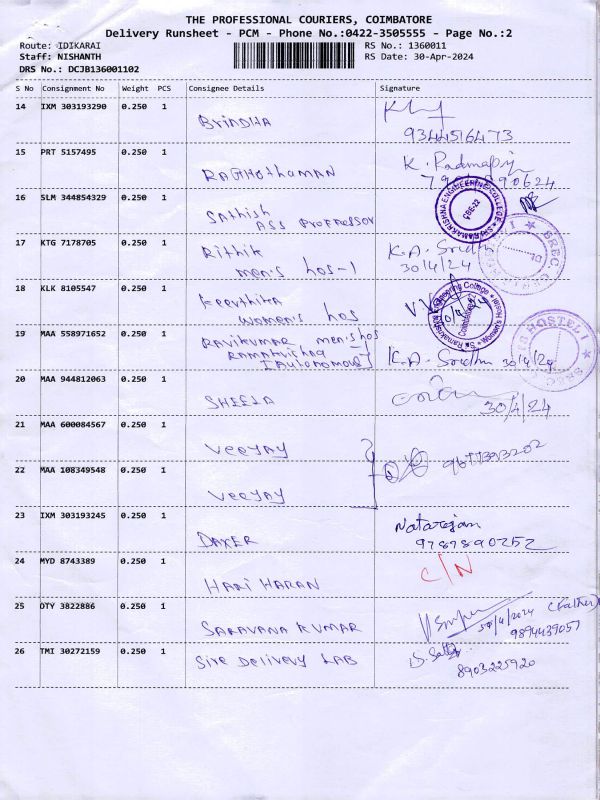 THE PROFESSIONAL COURIERS, COIMBATORE
Delivery Runsheet - PCM - Phone No.:0422-3505555 - Page No.:2
Route: IDIKARAI
RS No.: 1360011
Staff: NISHANTH
RS Date: 30-Apr-2024
DRS No.: DCJB136001102
S No Consignment No Weight PCS Consignee Details Signature
14 IXM 303193290 0.250 1
BrinDHA
9344516473
15 PRT 5157495 0.250 1
RAGHOTHAMAN
K.
16 SLM 344854329 0.250 1
Sathish
ASS PROFESSOR
SRI RAMAKRISHNA ENGINEERING COLLEGE
CBE-22
17 KTG 7178705 0.250 1
Rithik
men's hos-1
K.A. Sridhu
30/4/24
SREC
18 KLK 8105547 0.250 1
Keerthika
women's hos
Sri Ramakrishna Engineering College Women's Hostel
Coimbatore-22
19 MAA 558971652 0.250 1
Ravikumar men's hos
[Autonomous]
K.A. Sridhu 30/4/24
HOSTEL SREC
20 MAA 944812063 0.250 1
SHEELA
30/4/24
21 MAA 600084567 0.250 1
Veejay
22 MAA 108349548 0.250 1
Veejay
23 IXM 303193245 0.250 1
DAKER
Natarajan
9787890252
24 MYD 8743389 0.250 1
HARI HARAN
C/N
25 OTY 3822886 0.250 1
SARAVANA KUMAR
(Father)
9894439057
26 TMI 30272159 0.250 1
Sire Delivery LAB
8903225920